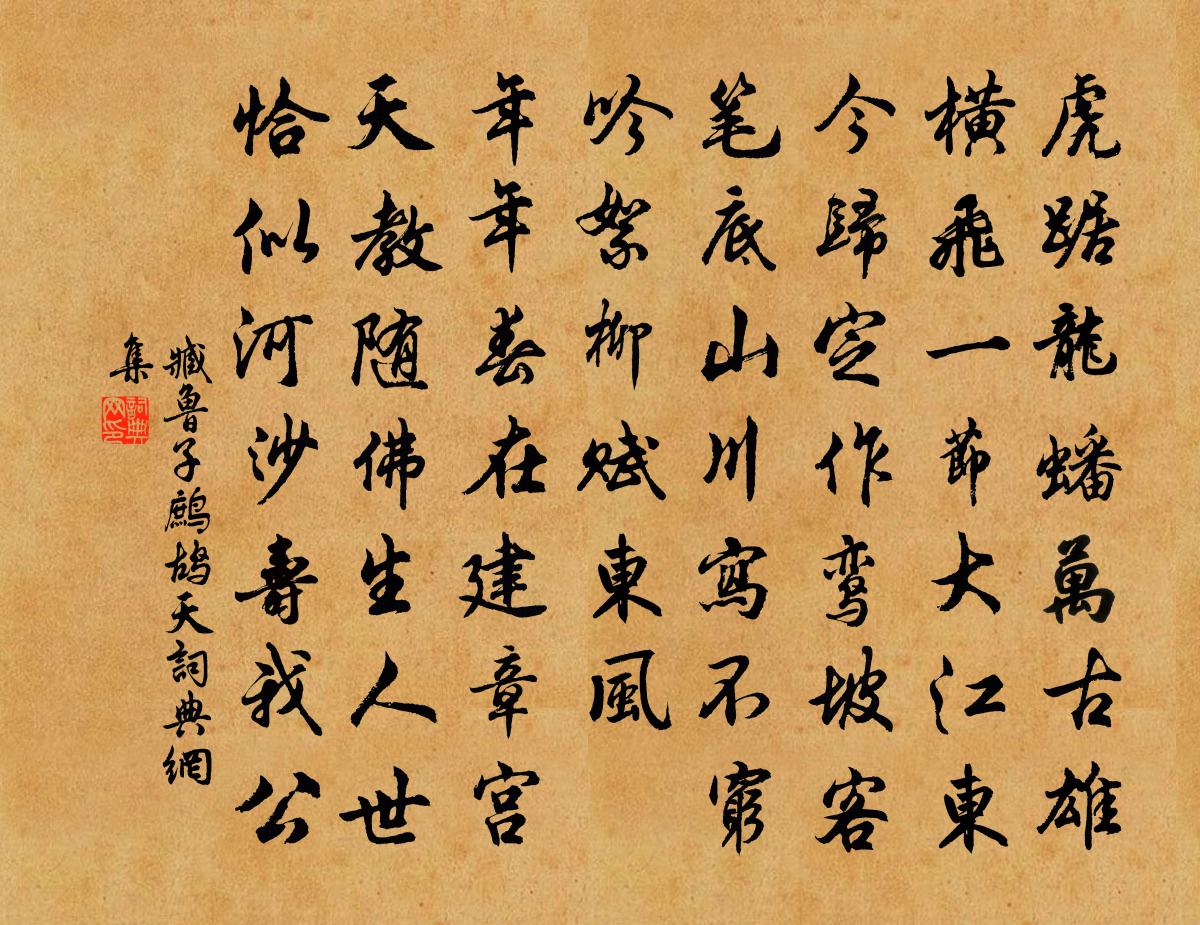 虎踞龍蟠萬古雄
橫飛一節大江東
今歸定作鸾坡客
笔底山川寫不窮
吟絮柳賦東風
年年春在建章宮
天教随佛生人世
恰似河沙壽我公
臧魯子鷓鴣天詞典網
集
詞典網印